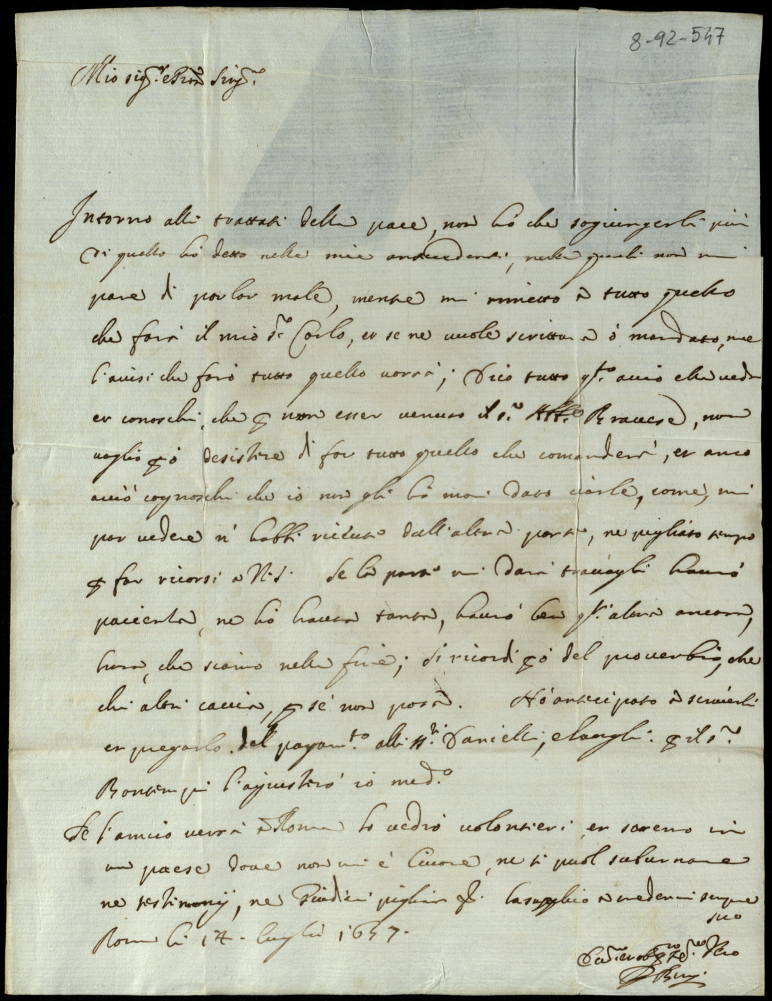 8-92-547
Mio sig.re e Pron Sing.mo
Intorno alli trattati della pace, non hò che sogiungerli più
di quello hò detto nelle mie antecedenti, nelle quali non mi
pare di parlar male, mentre mi rimetto à tutto quello
che farà il mio S.r Carlo, et se ne vuole scrittura ò mandato, me
l'avisi che farò tutto quello vorrà; Dico tutto q.to acciò che veda
et conoschi, che p non esser venuto il S.r Bravese, non
voglio p ò desistere di far tutto quello che comanderà, et anco
acciò cognoschi che io non gli hò mai dato ciarle, come, mi
par vedere n' habbi dall'altra parte, ne pigliato tempo
p far ricorsi à N.S. Se la parte mi darà travagli haverò
pacienza, ne hò havuta tanta, haverò ben q.st'altra ancora,
hora, che siamo nella fine; Si ricordi p ò del proverbio, che
chi altri caccia, p sè non posa. Hò antecipato à scriverli
et pregarlo del pagam.to alli Danielli, e p il S.r
Bontempi l'agiusterò io med.o
Se l'amico verrà à Roma lo vedrò volontieri et saremo in
un paese dove non mi è, ne si puol subornare
ne testimonij, ne Giudici La supplico à credermi sempre
suo
Roma li 14 luglio 1657.